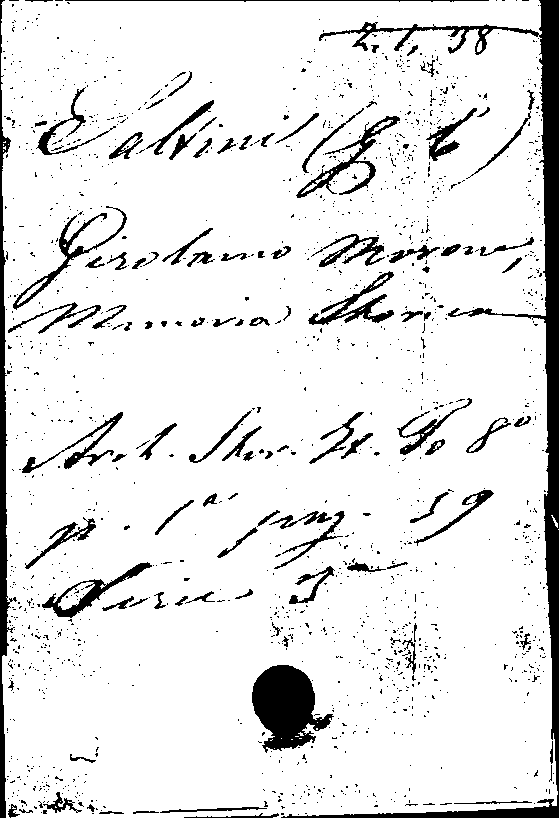 2. 1, 38
Saltini (G. E)
Girolamo Morone,
Memoria Storica
Arch. Stor. It. To 8º
p. 1ª pag. 59
Serie 3ª